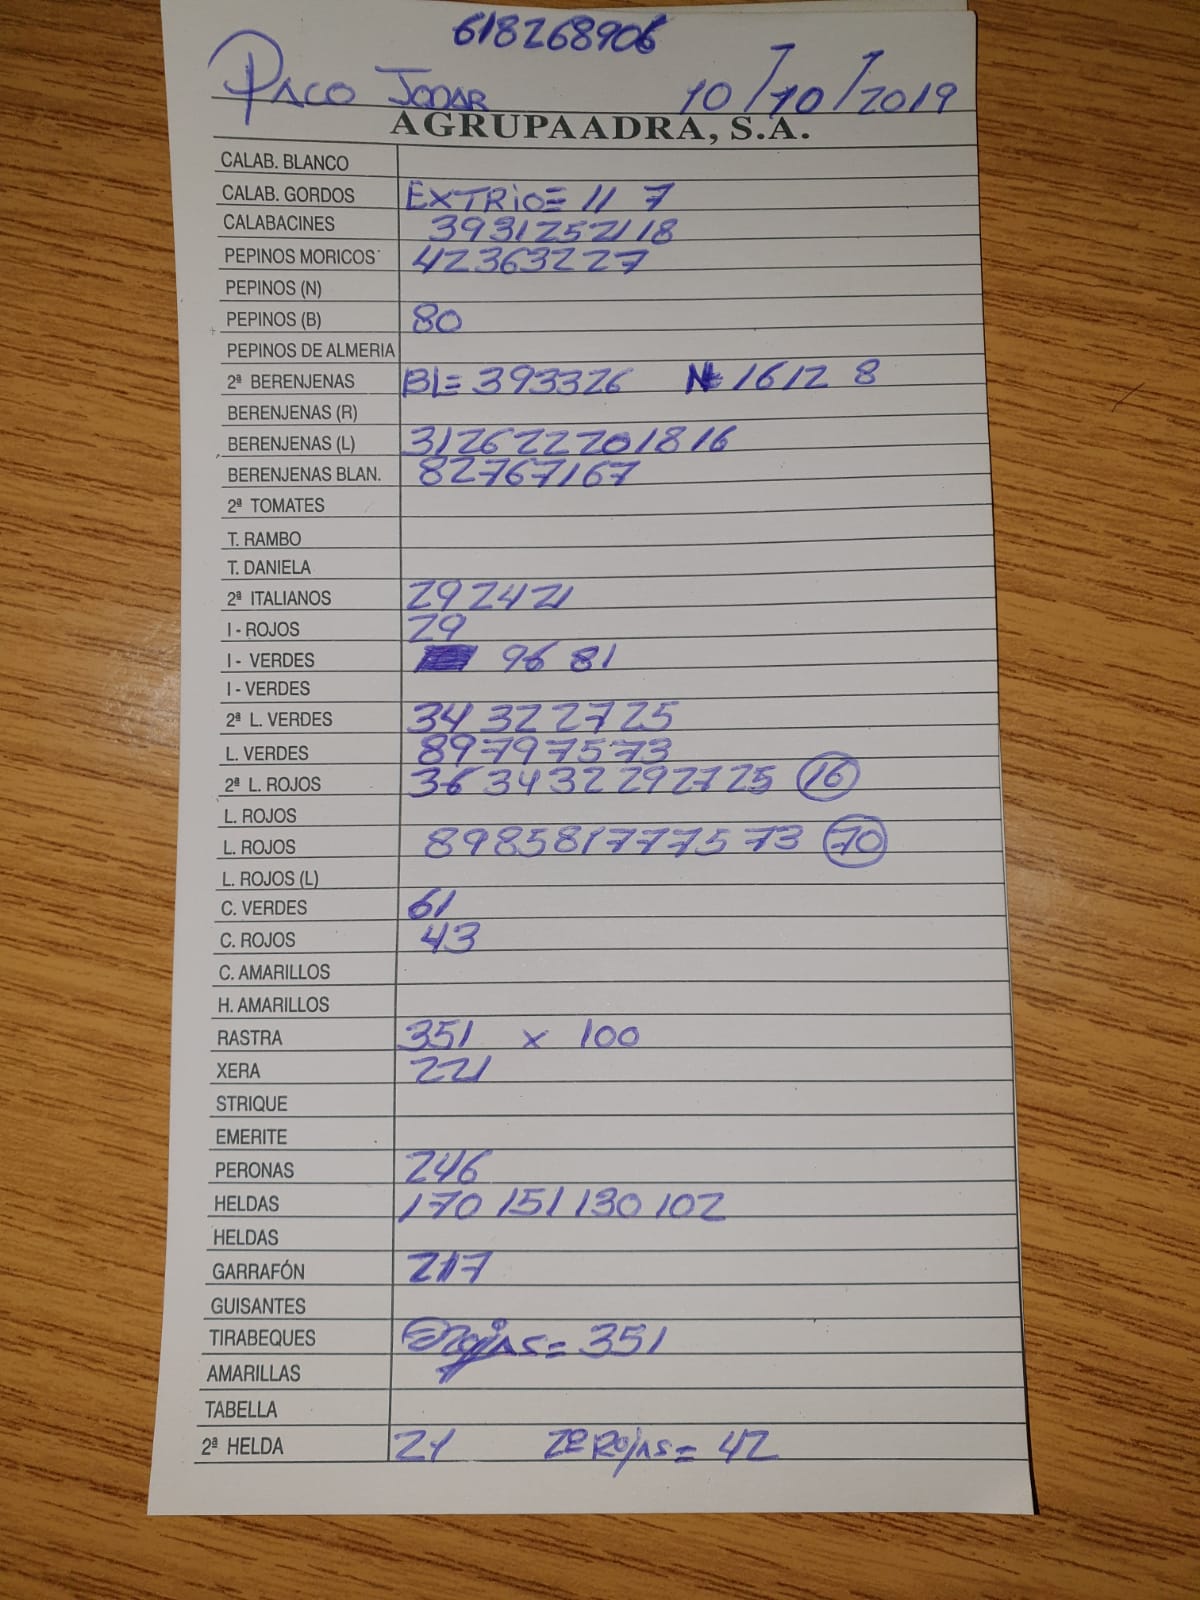 618268906
PACO JODAR 10/10/2019
AGRUPAADRA, S.A.
CALAB. BLANCO
CALAB. GORDOS EXTRIO= 11 7
CALABACINES 3931252118
PEPINOS MORICOS 42363227
PEPINOS (N)
PEPINOS (B) 80
PEPINOS DE ALMERIA
2ª BERENJENAS BL= 393326 N= 1612 8
BERENJENAS (R)
BERENJENAS (L) 312622201816
BERENJENAS BLAN. 82767167
2ª TOMATES
T. RAMBO
T. DANIELA
2ª ITALIANOS 292421
I - ROJOS 29
I - VERDES 96 81
I - VERDES
2ª L. VERDES 34 32 27 25
L. VERDES 89797573
2ª L. ROJOS 36 34 32 29 27 25 16
L. ROJOS
L. ROJOS 898581777573 70
L. ROJOS (L)
C. VERDES 61
C. ROJOS 43
C. AMARILLOS
H. AMARILLOS
RASTRA 351 x 100
XERA 221
STRIQUE
EMERITE
PERONAS 246
HELDAS 170 151 130 102
HELDAS
GARRAFÓN 217
GUISANTES
TIRABEQUES = 351
AMARILLAS
TABELLA
2ª HELDA 21 2ª ROJAS = 42